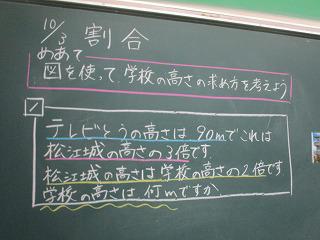 10/3 割合
めあて
図を使って学校の高さの求め方を考えよう
1
テレビとうの高さは 90mでこれは
松江城の高さの3倍です
松江城の高さは学校の高さの2倍です
学校の高さは何mですか